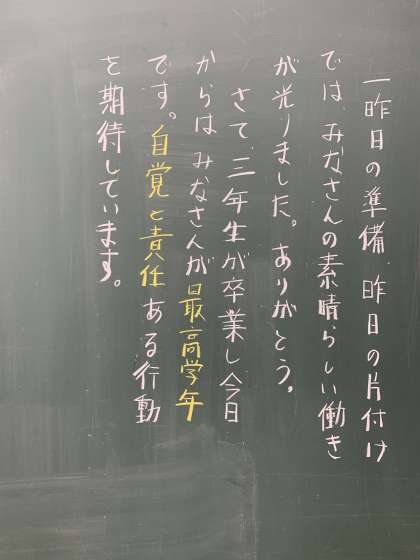 一昨日の準備、昨日の片付け
では、みなさんの素晴らしい働き
が光りました。ありがとう。
さて、三年生が卒業し今日
からは、みなさんが最高学年
です。自覚と責任ある行動
を期待しています。